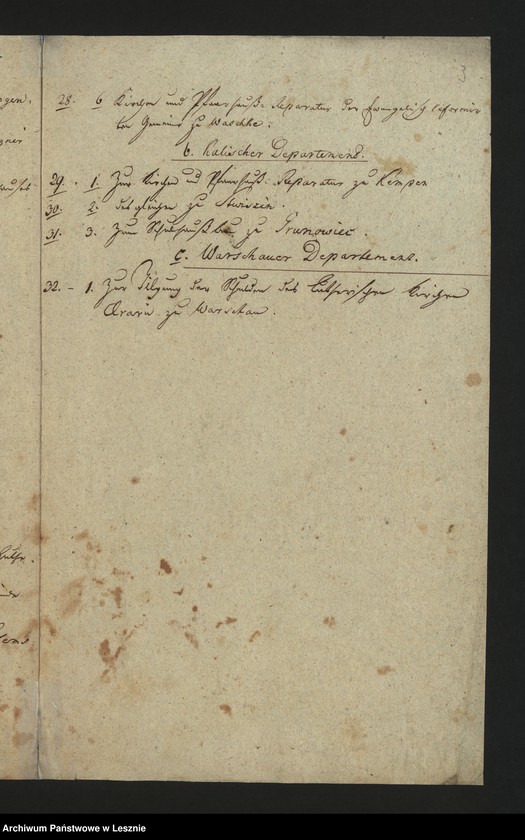 3
28. 6 Kirchen und Pfarrhauß-Reparatur der Evangelisch reformir
ten Gemeine zu Waschke.
b. Kalischer Departement.
29. 1. Zur Kirchen und Pfarrhauß-Reparatur zu Kempen
30. 2. desgleichen zu
31. 3. Zum Schulhauß bau zu Grunowiec.
C. Warschauer Departement.
32. - 1. Zur Tilgung der Schulden des Lutherischen Kirchen
Ararii zu Warschau.
Archiwum Państwowe w Lesznie